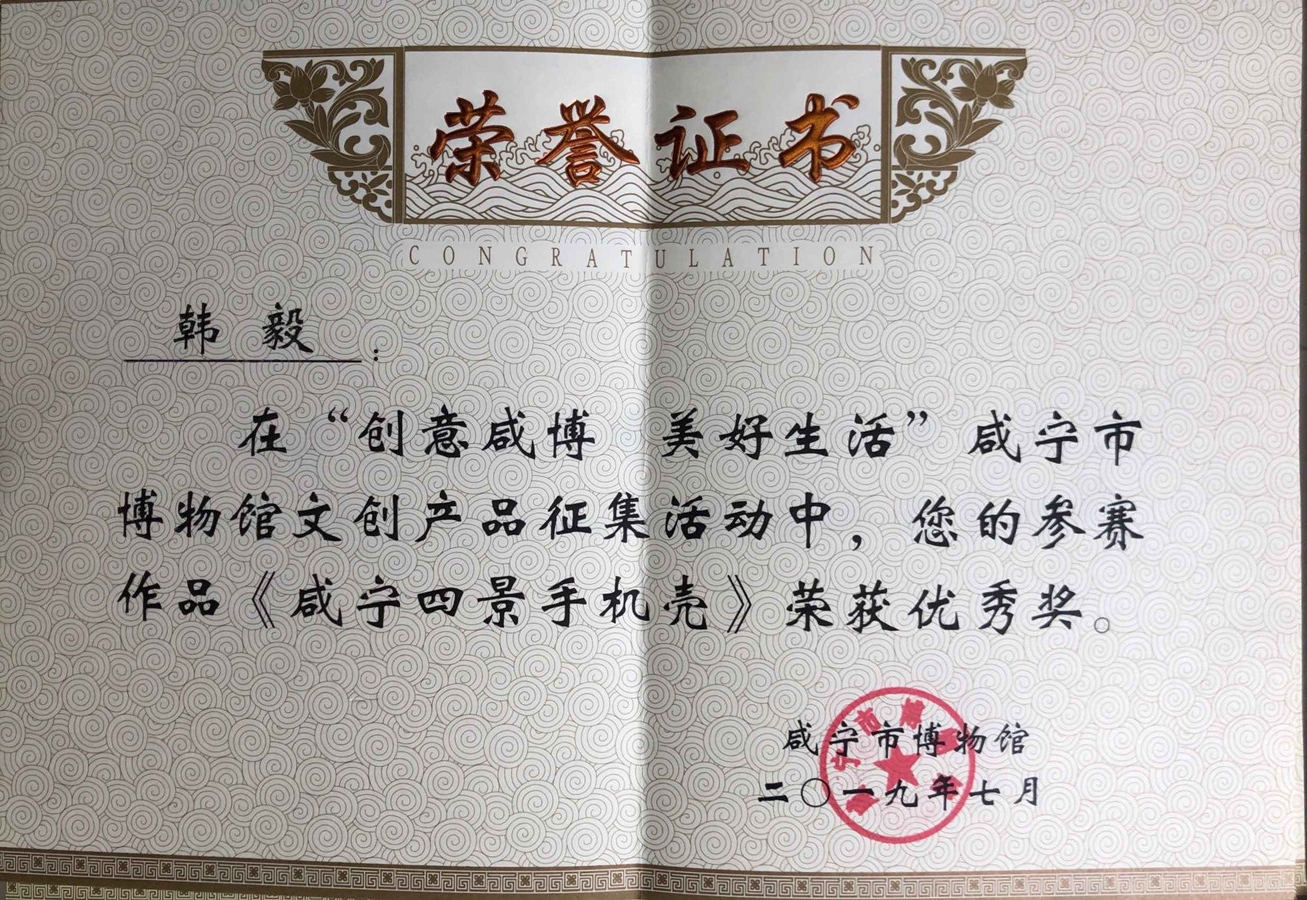 荣誉证书
CONGRATULATION
韩 毅：
在“创意咸博 美好生活”咸宁市
博物馆文创产品征集活动中，您的参赛
作品《咸宁四景手机壳》荣获优秀奖。
咸宁市博物馆
二〇一九年七月